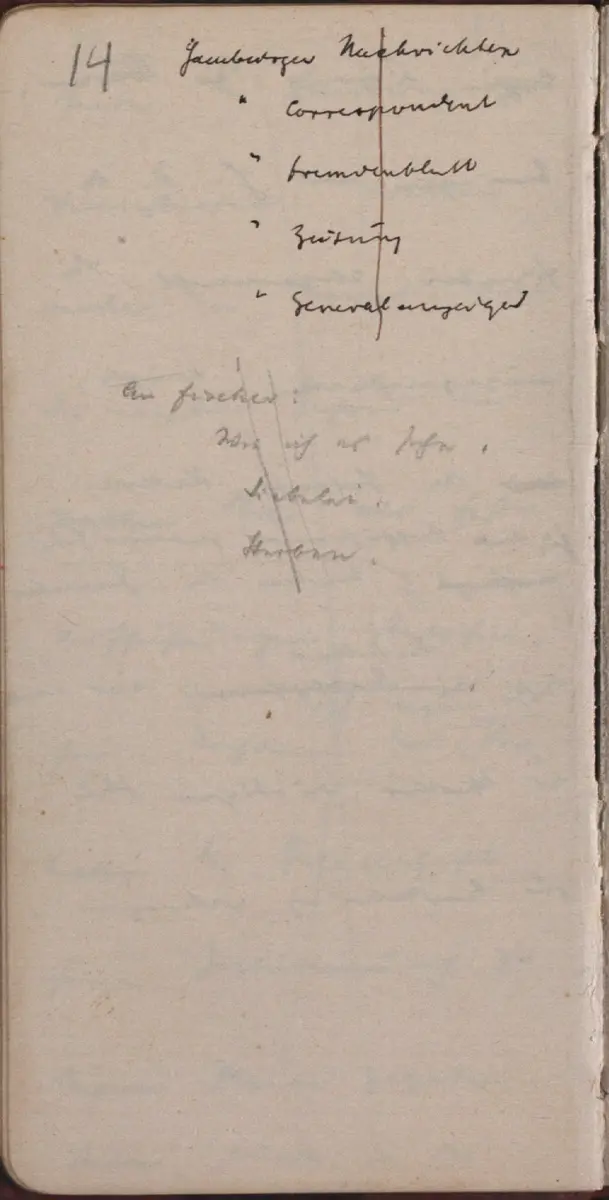 14
Hamburger Nachrichten
" Correspondent
" Fremdenblatt
" Zeitung
" Generalanzeiger
An Fischer:
Wie ich es sehe.
Liebelei.
Sterben.